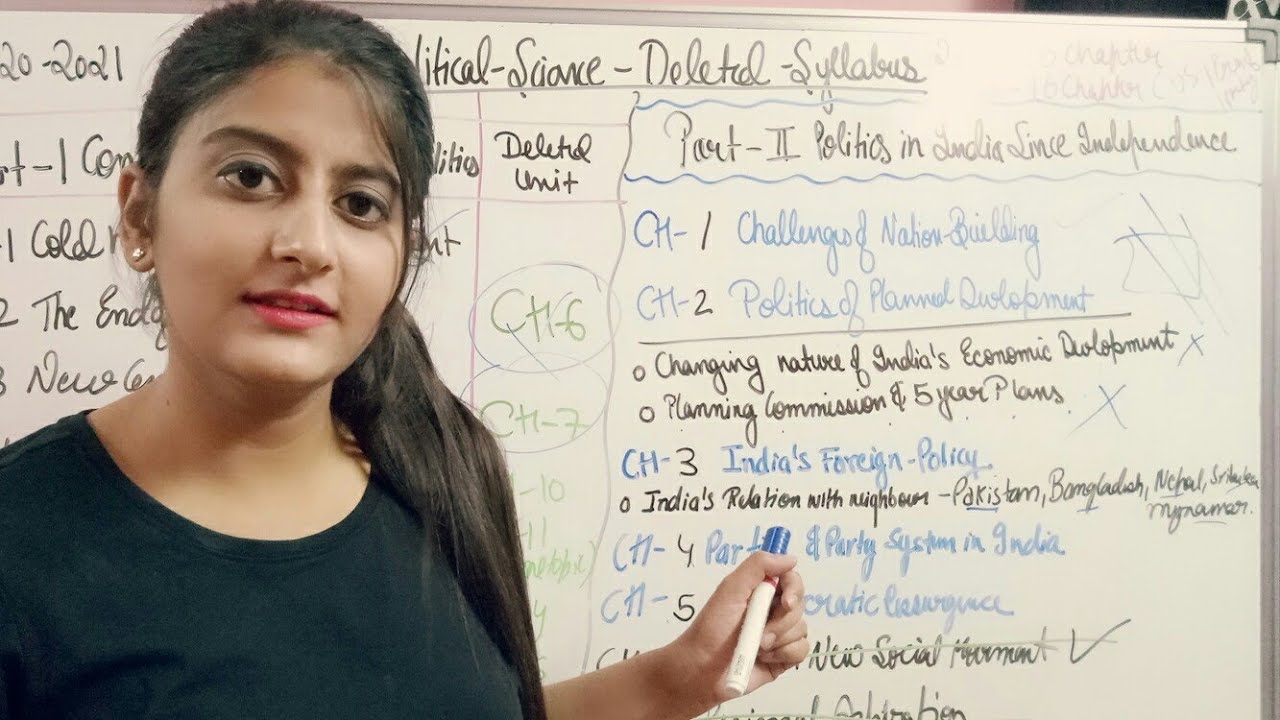 20-2021 litical-Sciance-Deleted-Syllabus
Chapter
16 Chapter
rt-1 Con litics
Deleted
Unit
1 Cold
2 The Endg
3 New Cen
CH-6
CH-7
-10
-11
Part-II Politics in India Since Independence
CH-1 Challenges of Nation-Building
CH-2 Politics of Planned Development
o Changing nature of India's Economic Development x
o Planning Commission & 5 year Plans X
CH-3 India's Foreign-Policy
o India's Relation with neighbour - Pakistan, Bangladesh, Nepal, Srilanka
Mynamar.
CH-4 Part & Party System in India
CH-5 cratic Resurgence
New Social Movement ✓